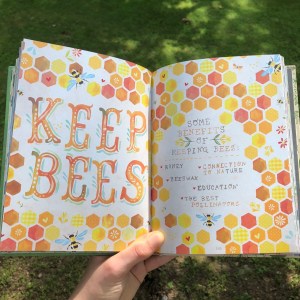 KEEP
BEES
SOME
BENEFITS
OF
KEEPING BEES:
• HONEY
• CONNECTION
TO NATURE
• BEESWAX
• EDUCATION
• THE BEST
POLLINATORS